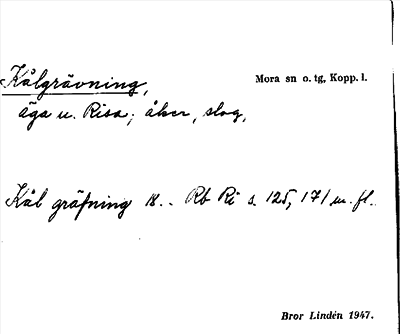 Kålgrävning,
Mora sn o. tg, Kopp. l.
äga u. Risa; åker, slog,
Kål gräfning 18.. Rb Ri s. 125, 171 m. fl.
Bror Lindén 1947.